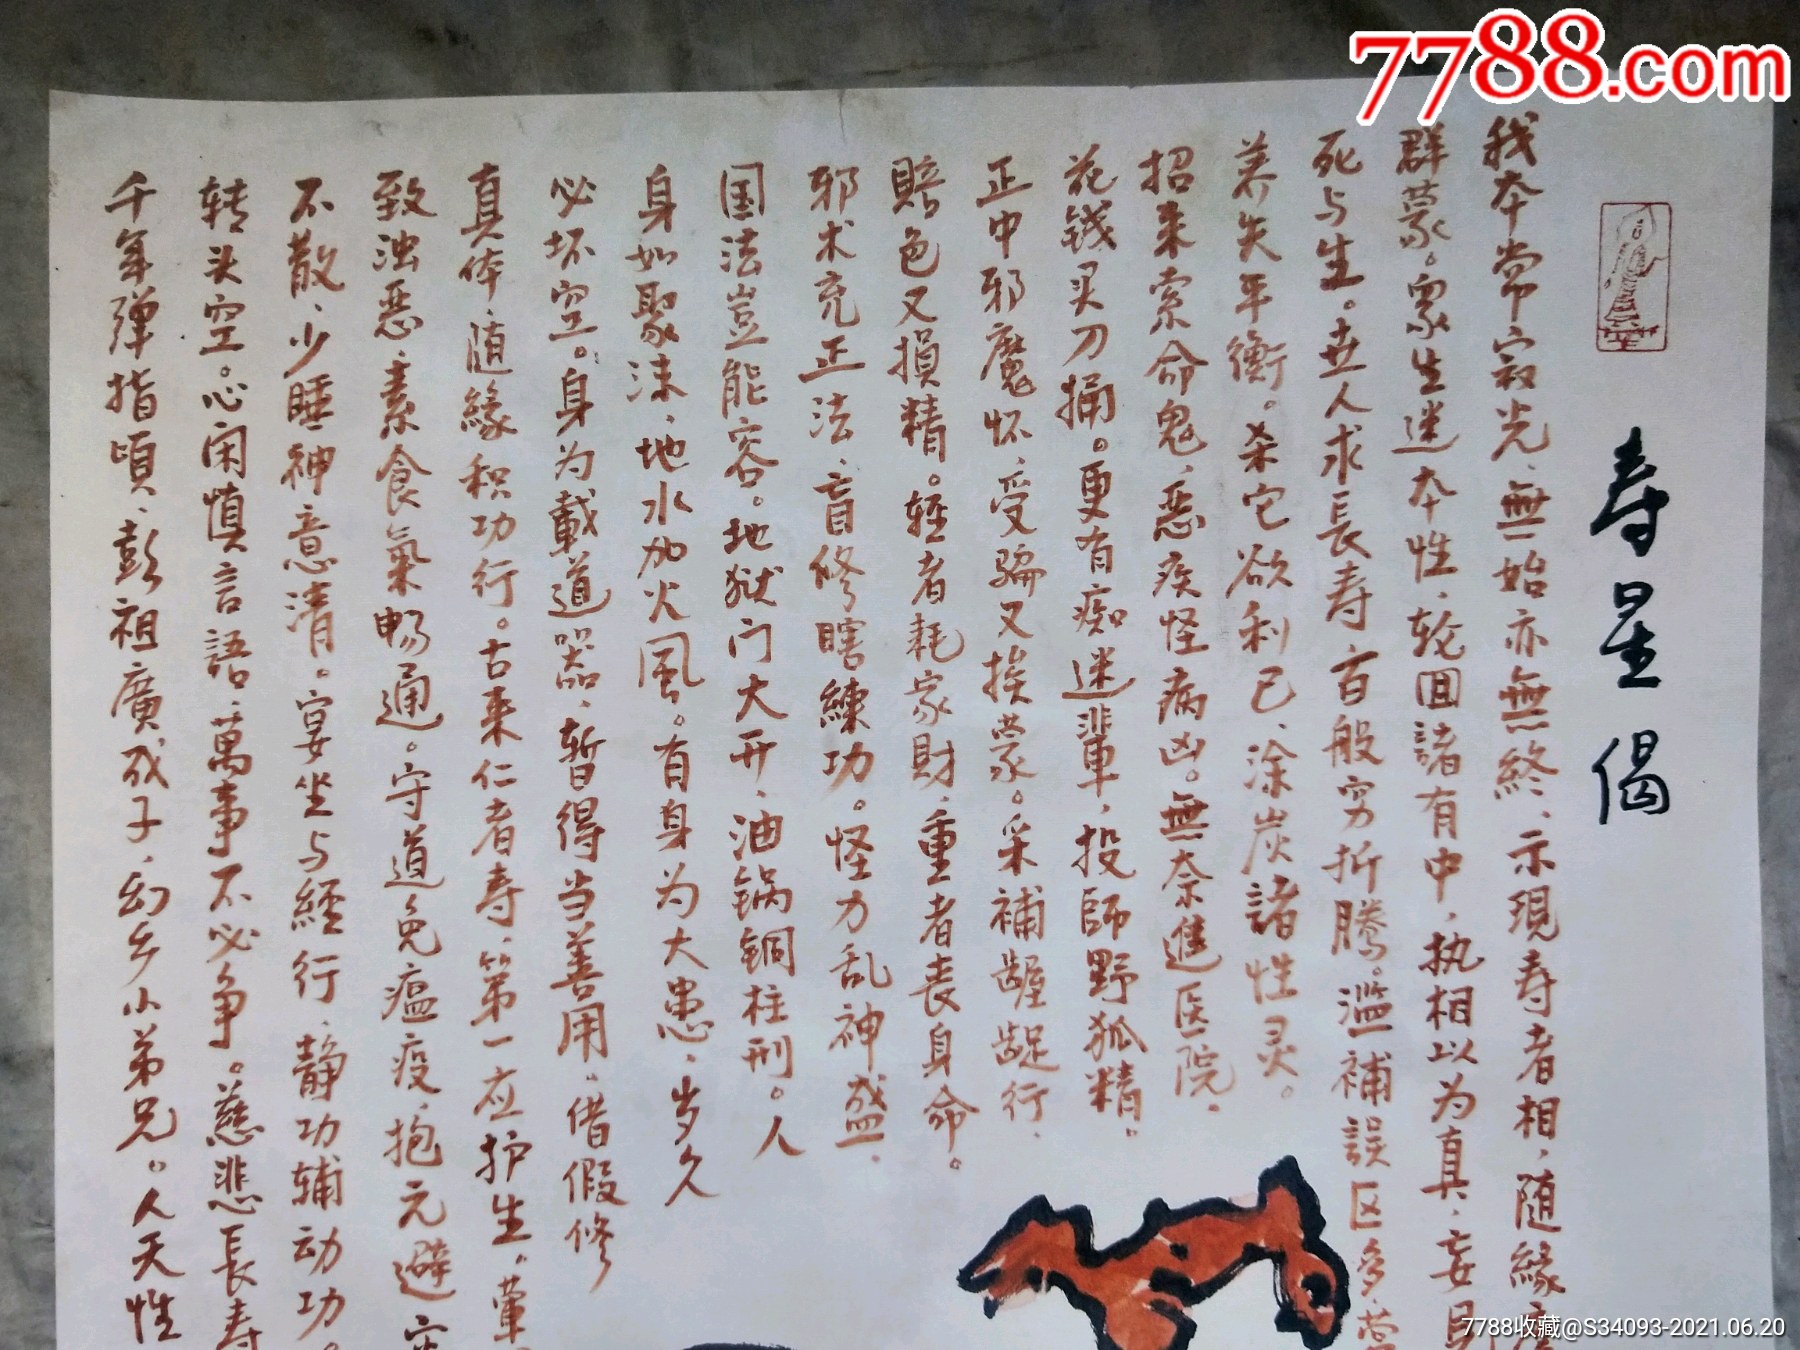 7788.com
寿星偈
我本常寂光、無始亦無終、示現寿者相，随緣度
群蒙。衆生迷本性、轮囬諸有中，执相以为真、妄見
死与生。世人求長寿、百般穷折腾。滥補誤区多、营
养失平衡。杀它欲利己、涂炭諸性灵。
招来索命鬼、恶疾怪病凶。無奈進医院、
花钱买刀捅。更有痴迷輩、投師野狐精。
正中邪魔怀、受骗又挨蒙。采補龌龊行、
賠色又損精。轻者耗家财、重者丧身命。
邪术充正法、盲修瞎練功。怪力乱神盛、
国法豈能容。地狱门大开、油锅铜柱刑。人
身如聚沫、地水加火風。有身为大患、岁久
必坏空。身为載道器、暫得当善用、借假修
真体、随緣积功行。古来仁者寿、第一应护生。葷
致浊恶、素食氣畅通。守道免瘟疫、抱元避
不散、少睡神意清。宴坐与經行、静功辅动功。
转头空。心闲慎言語、萬事不必争。慈悲長寿
千年弹指頃、彭祖廣成子、幻乡小弟兄。人天性
7788收藏@S34093-2021.06.20